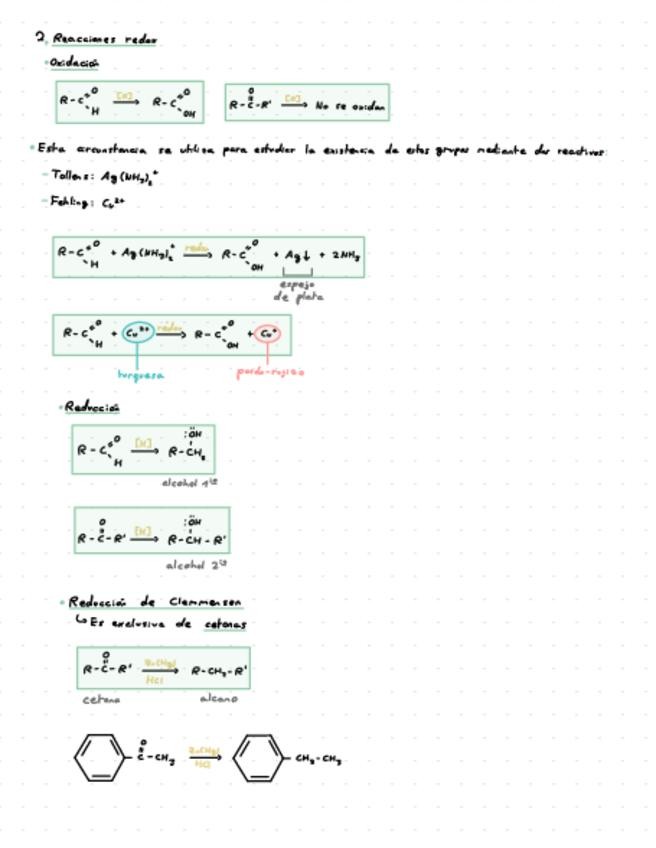 2. Reacciones redox
• Oxidación
R-C=O H [O] → R-C=O OH
R-C(=O)-R' [O] → No se oxidan
• Esta circunstancia se utiliza para estudiar la existencia de estos grupos mediante dos reactivos:
- Tollens: Ag(NH₃)₂⁺
- Fehling: Cu²⁺
R-C=O H + Ag(NH₃)₂⁺ redox → R-C=O OH + Ag↓ + 2NH₃
espejo
de plata
R-C=O H + Cu²⁺ redox → R-C=O OH + Cu⁺
turquesa pardo-rojizo
• Reducción
R-C=O H [H] → R-CH₂ :ÖH
alcohol 1º
R-C(=O)-R' [H] → R-CH-R' :ÖH
alcohol 2º
• Reducción de Clemmensen
↳ Es exclusiva de cetonas
R-C(=O)-R' Zn(Hg) HCl → R-CH₂-R'
cetona alcano
C(=O)-CH₃ Zn(Hg) HCl → CH₂-CH₃